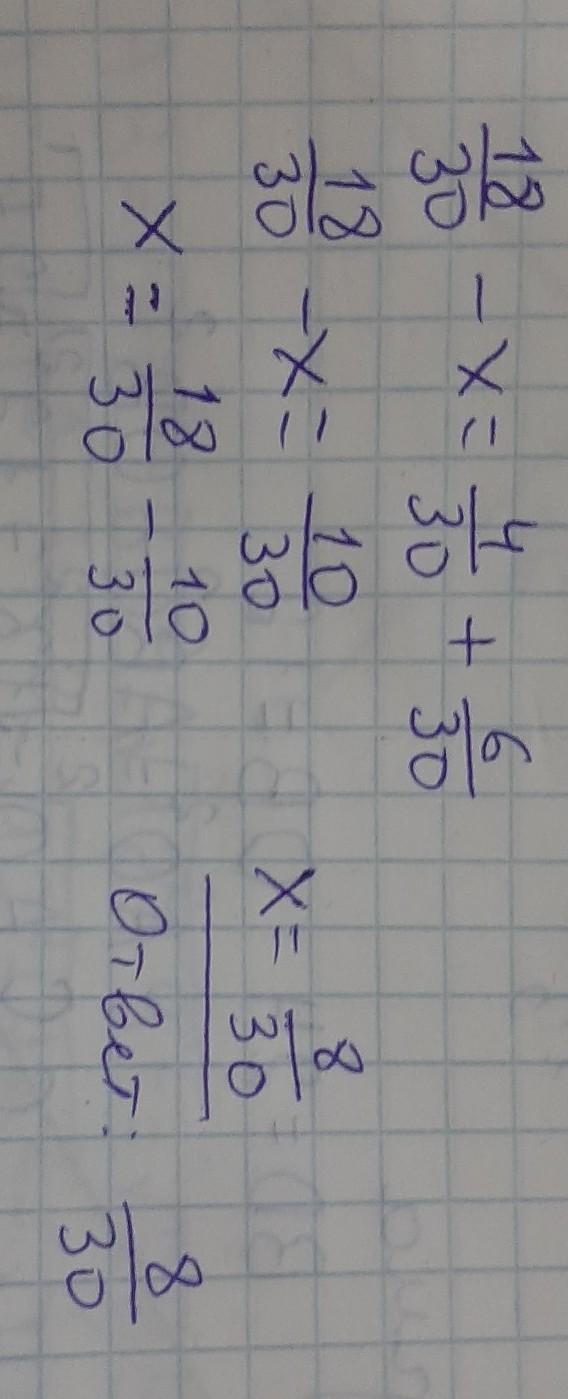 18/30 - x = 4/30 + 6/30
18/30 - x = 10/30
x = 18/30 - 10/30
x = 8/30
Ответ: 8/30